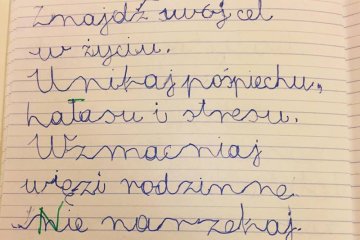 Znajdź swój cel
w życiu.
Unikaj pośpiechu,
hałasu i stresu.
Wzmacniaj
więzi rodzinne.
Nie narzekaj.